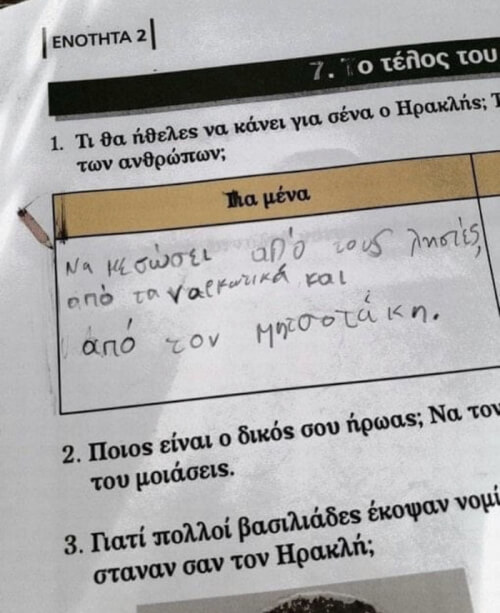 ΕΝΟΤΗΤΑ 2
7. Το τέλος του
1. Τι θα ήθελες να κάνει για σένα ο Ηρακλής; Τ
των ανθρώπων;
Για μένα
Να με σώσει από τους ληστές,
από τα ναρκωτικά και
από τον μητσοτάκη.
2. Ποιος είναι ο δικός σου ήρωας; Να τον
του μοιάσεις.
3. Γιατί πολλοί βασιλιάδες έκοψαν νομί
σταναν σαν τον Ηρακλή;